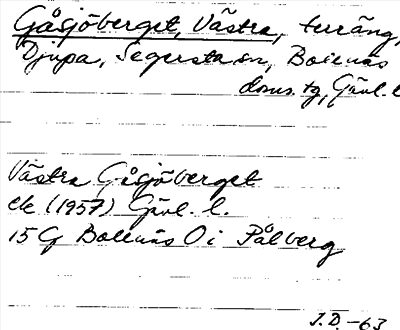 Gåsjöberget, Västra, terräng,
Djupa, Segersta sn, Bollnäs
doms. tg, Gävl. l
Västra Gåsjöberget
ek (1957) Gävl. l.
15G Bollnäs O i Pålberg
J.D. -63